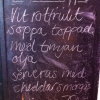 Vit rotfrukt
soppa toppad
med timjan
olja
serveras med
cheddarsmörgås